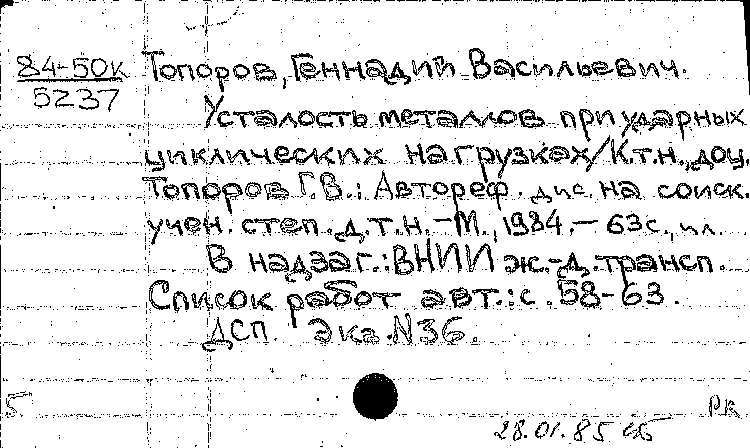 84-50к Топоров, Геннадий Васильевич.
5237
Усталость металлов при ударных
циклических нагрузках/К.т.н., доц.
Топоров Г.В.: Автореф. дис. на соиск.
учен. степ. д.т.н.-М., 1984.-63с., ил.
В надзаг.: ВНИИ ж.-д. трансп.
Список работ авт.: с. 58-63.
ДСП. Экз. N36.
5
РК
28.01.85